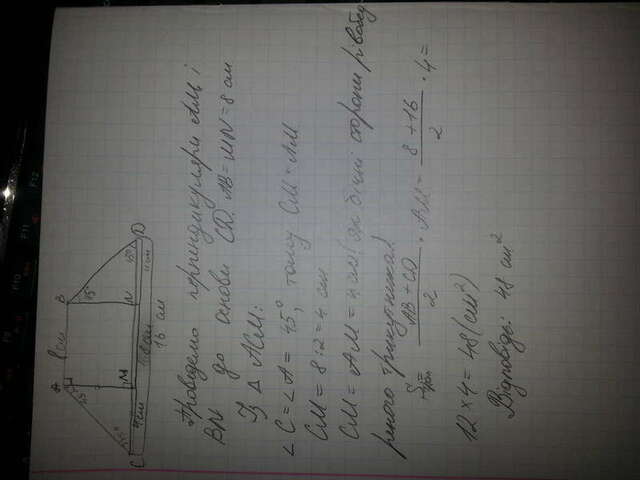 A 8 см B
45° 45°
45° 45°
C 4см M 8 см N 4см D
16 см
Проведемо перпендикуляри AM і
BN до основи CD. AB = MN = 8 см
Із Δ ACM:
∠C = ∠A = 45°, тому CM = AM
CM = 8 : 2 = 4 см
CM = AM = 4 см (як бічні сторони рівнобед
реного трикутника)
Sтрап = AB + CD / 2 · AM = 8 + 16 / 2 · 4 =
12 × 4 = 48 (см²)
Відповідь: 48 см²
F12
F11
F10